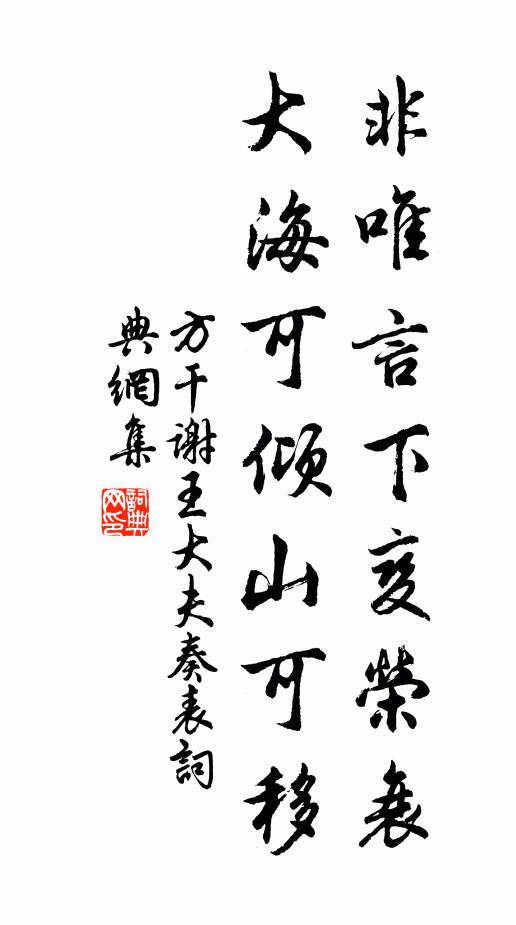 非唯言下变榮衰
大海可倾山可移
方干谢王大夫奏表詞
典網集
詞典网印